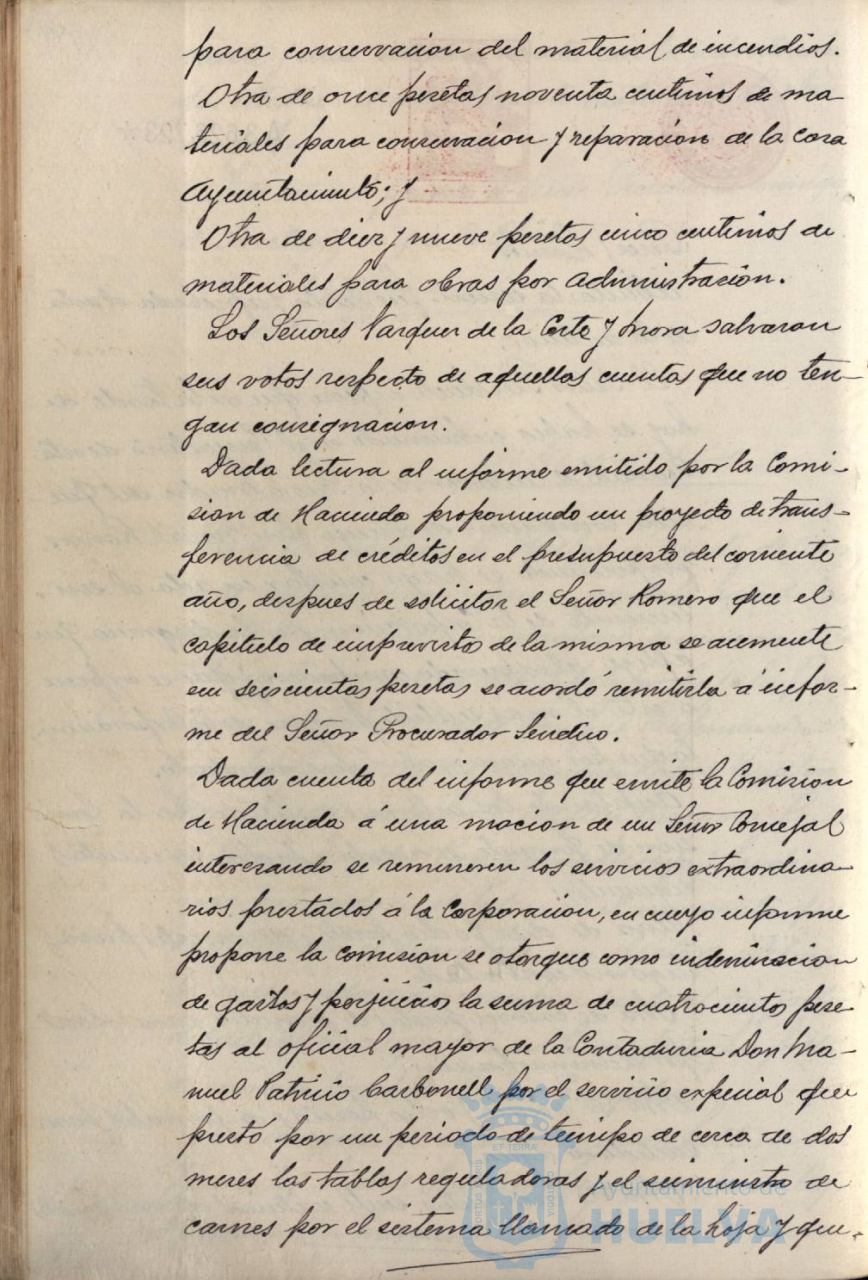 para conservacion del material de incendios.
Otra de once pesetas noventa centimos de ma-
teriales para conservacion y reparacion de la Casa
Ayuntamiento; y
Otra de diez y nueve pesetas cinco centimos de
materiales para obras por administración.
Los Señores Vazquez de la Corte y Mora salvaron
sus votos respecto de aquellas cuentas que no ten-
gan consignacion.
Dada lectura al informe emitido por la Comi-
sion de Hacienda proponiendo un proyecto de trans-
ferencia de créditos en el presupuesto del corriente
año, despues de solicitar el Señor Romero que el
capitulo de imprevistos de la misma se aumente
en seiscientas pesetas se acordó remitirla á infor-
me del Señor Procurador Sindico.
Dada cuenta del informe que emite la Comision
de Hacienda á una mocion de un Señor Concejal
interesando se remuneren los servicios extraordina-
rios prestados á la Corporacion, en cuyo informe
propone la comision se otorgue como indemnizacion
de gastos y perjuicios la suma de cuatrocientas pese-
tas al oficial mayor de la Contaduria Don Ma-
nuel Patricio Carbonell por el servicio especial que
prestó por un periodo de tiempo de cerca de dos
meses las tablas reguladoras y el suministro de
carnes por el sistema llamado de la hoja y que
Ayuntamiento de
HUELVA